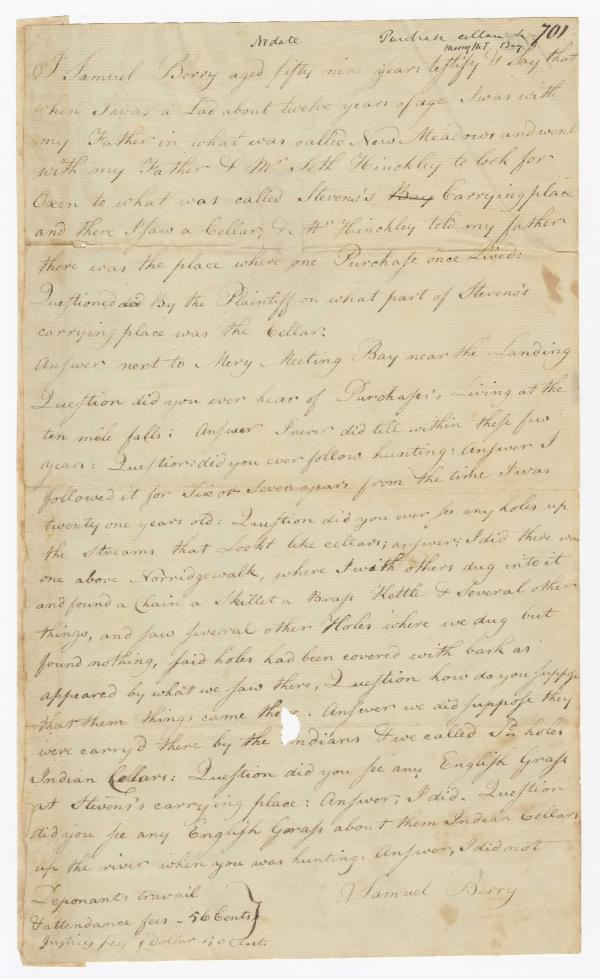 No date Purchase cellar 701
Merry Mt Bay
I Samuel Berry aged fifty nine years testify & say that
when I was a Lad about twelve years of age I was with
my Father in what was called New Meadows and went
with my Father & Mr Seth Hinckley to look for
Oxen to what was called Stevens's Bay Carrying place
and there I saw a Cellar, & Mr Hinckley told my father
there was the place where one Purchase once Lived:
Questioned did By the Plaintiff on what part of Stevens's
carrying place was the Cellar.
Answer next to Mery Meeting Bay near the Landing
Question did you ever hear of Purchases's Living at the
ten mile falls: Answer I never did till within these few
years: Question: did you ever follow hunting: Answer I
followed it for Six or Seven years from the time I was
twenty one years old: Question did you ever see any holes up
the Streams that Lookt like cellars; answer; I did there was
one above Norridgewalk, where I with others dug into it
and found a Chain a Skillet a Brass Kettle & Several other
things, and saw several other Holes where we dug but
found nothing, said holes had been covered with bark as
appeared by what we saw there, Question how do you suppose
that them things came there. Answer we did suppose they
were carry'd there by the Indians & we called Sd holes
Indian Cellars: Question did you see any English Grass
at Stevens's carrying place: Answer, I did. Question
did you see any English Grass about them Indian Cellars
up the river when you was hunting. Answer, I did not
Samuel Berry
Deponants travail
& attendance fees - 56 Cents
Justices fees 1 Dollar 50 Cent.